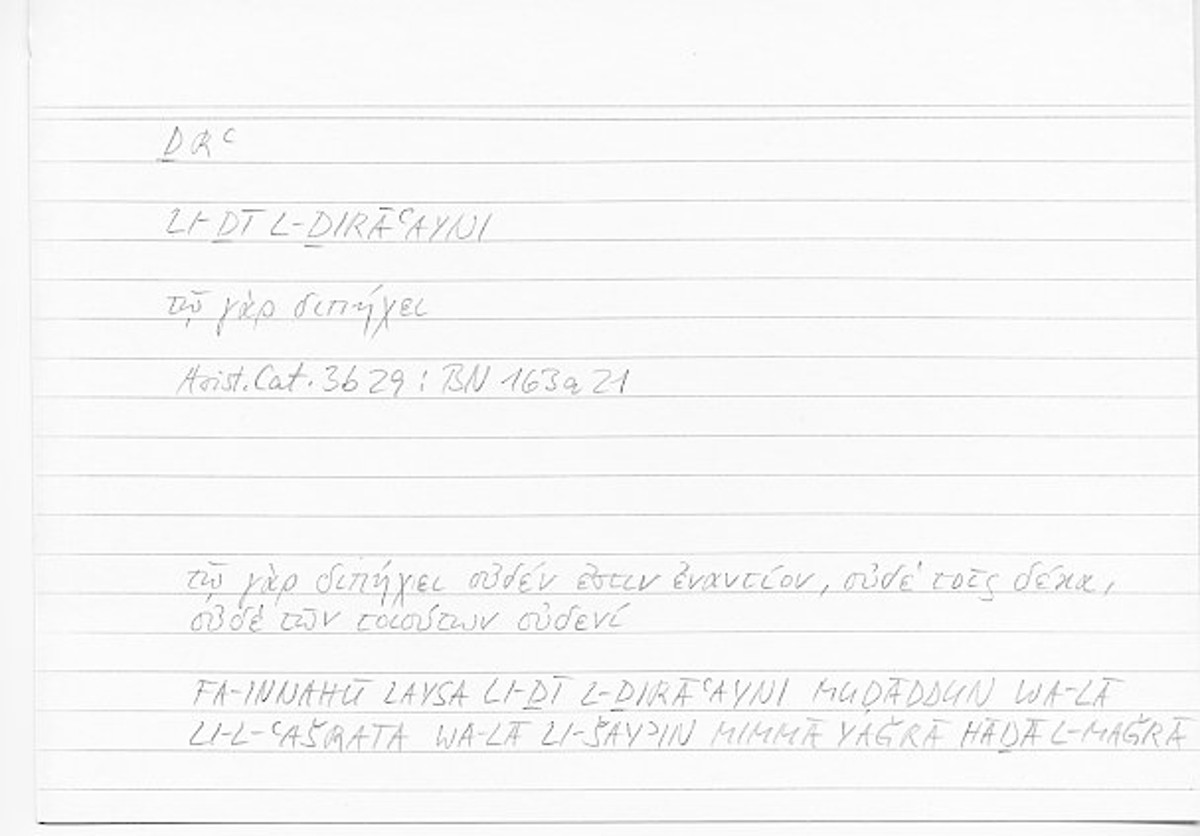 ḎRʿ
LI-ḎĪ L-ḎIRĀʿAYNI
τῷ γὰρ διπήχει
Arist. Cat. 3b 29 : BN 163a 21
τῷ γὰρ διπήχει οὐδέν ἐστιν ἐναντίον, οὐδὲ τοῖς δέκα,
οὐδὲ τῶν τοιούτων οὐδενί
FA-INNAHŪ LAYSA LI-ḎĪ L-ḎIRĀʿAYNI MUḌĀDDUN WA-LĀ
LI-L-ʿAŠRATA WA-LĀ LI-ŠAYʾIN MIMMĀ YAǦRĀ HĀḎĀ L-MAǦRĀ